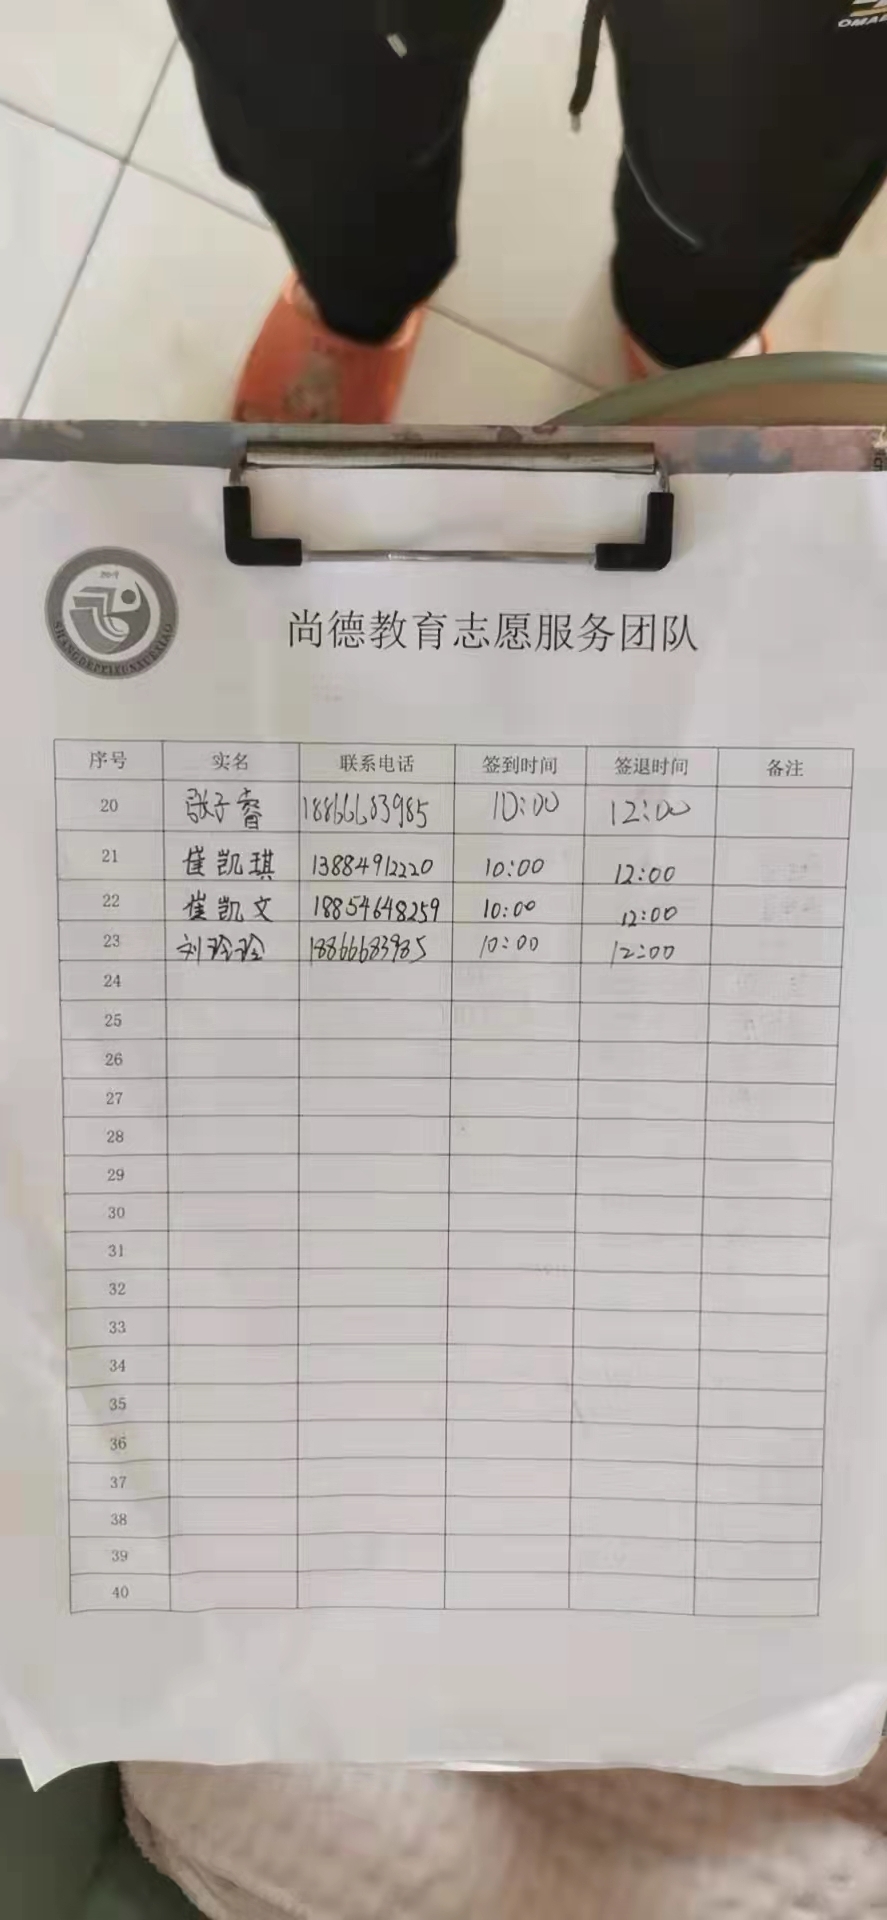 尚德教育志愿服务团队
序号 实名 联系电话 签到时间 签退时间 备注
20 张子睿 18866683985 10:00 12:00
21 崔凯琪 13884912220 10:00 12:00
22 崔凯文 18854648259 10:00 12:00
23 刘玲玲 18866683985 10:00 12:00
24
25
26
27
28
29
30
31
32
33
34
35
36
37
38
39
40